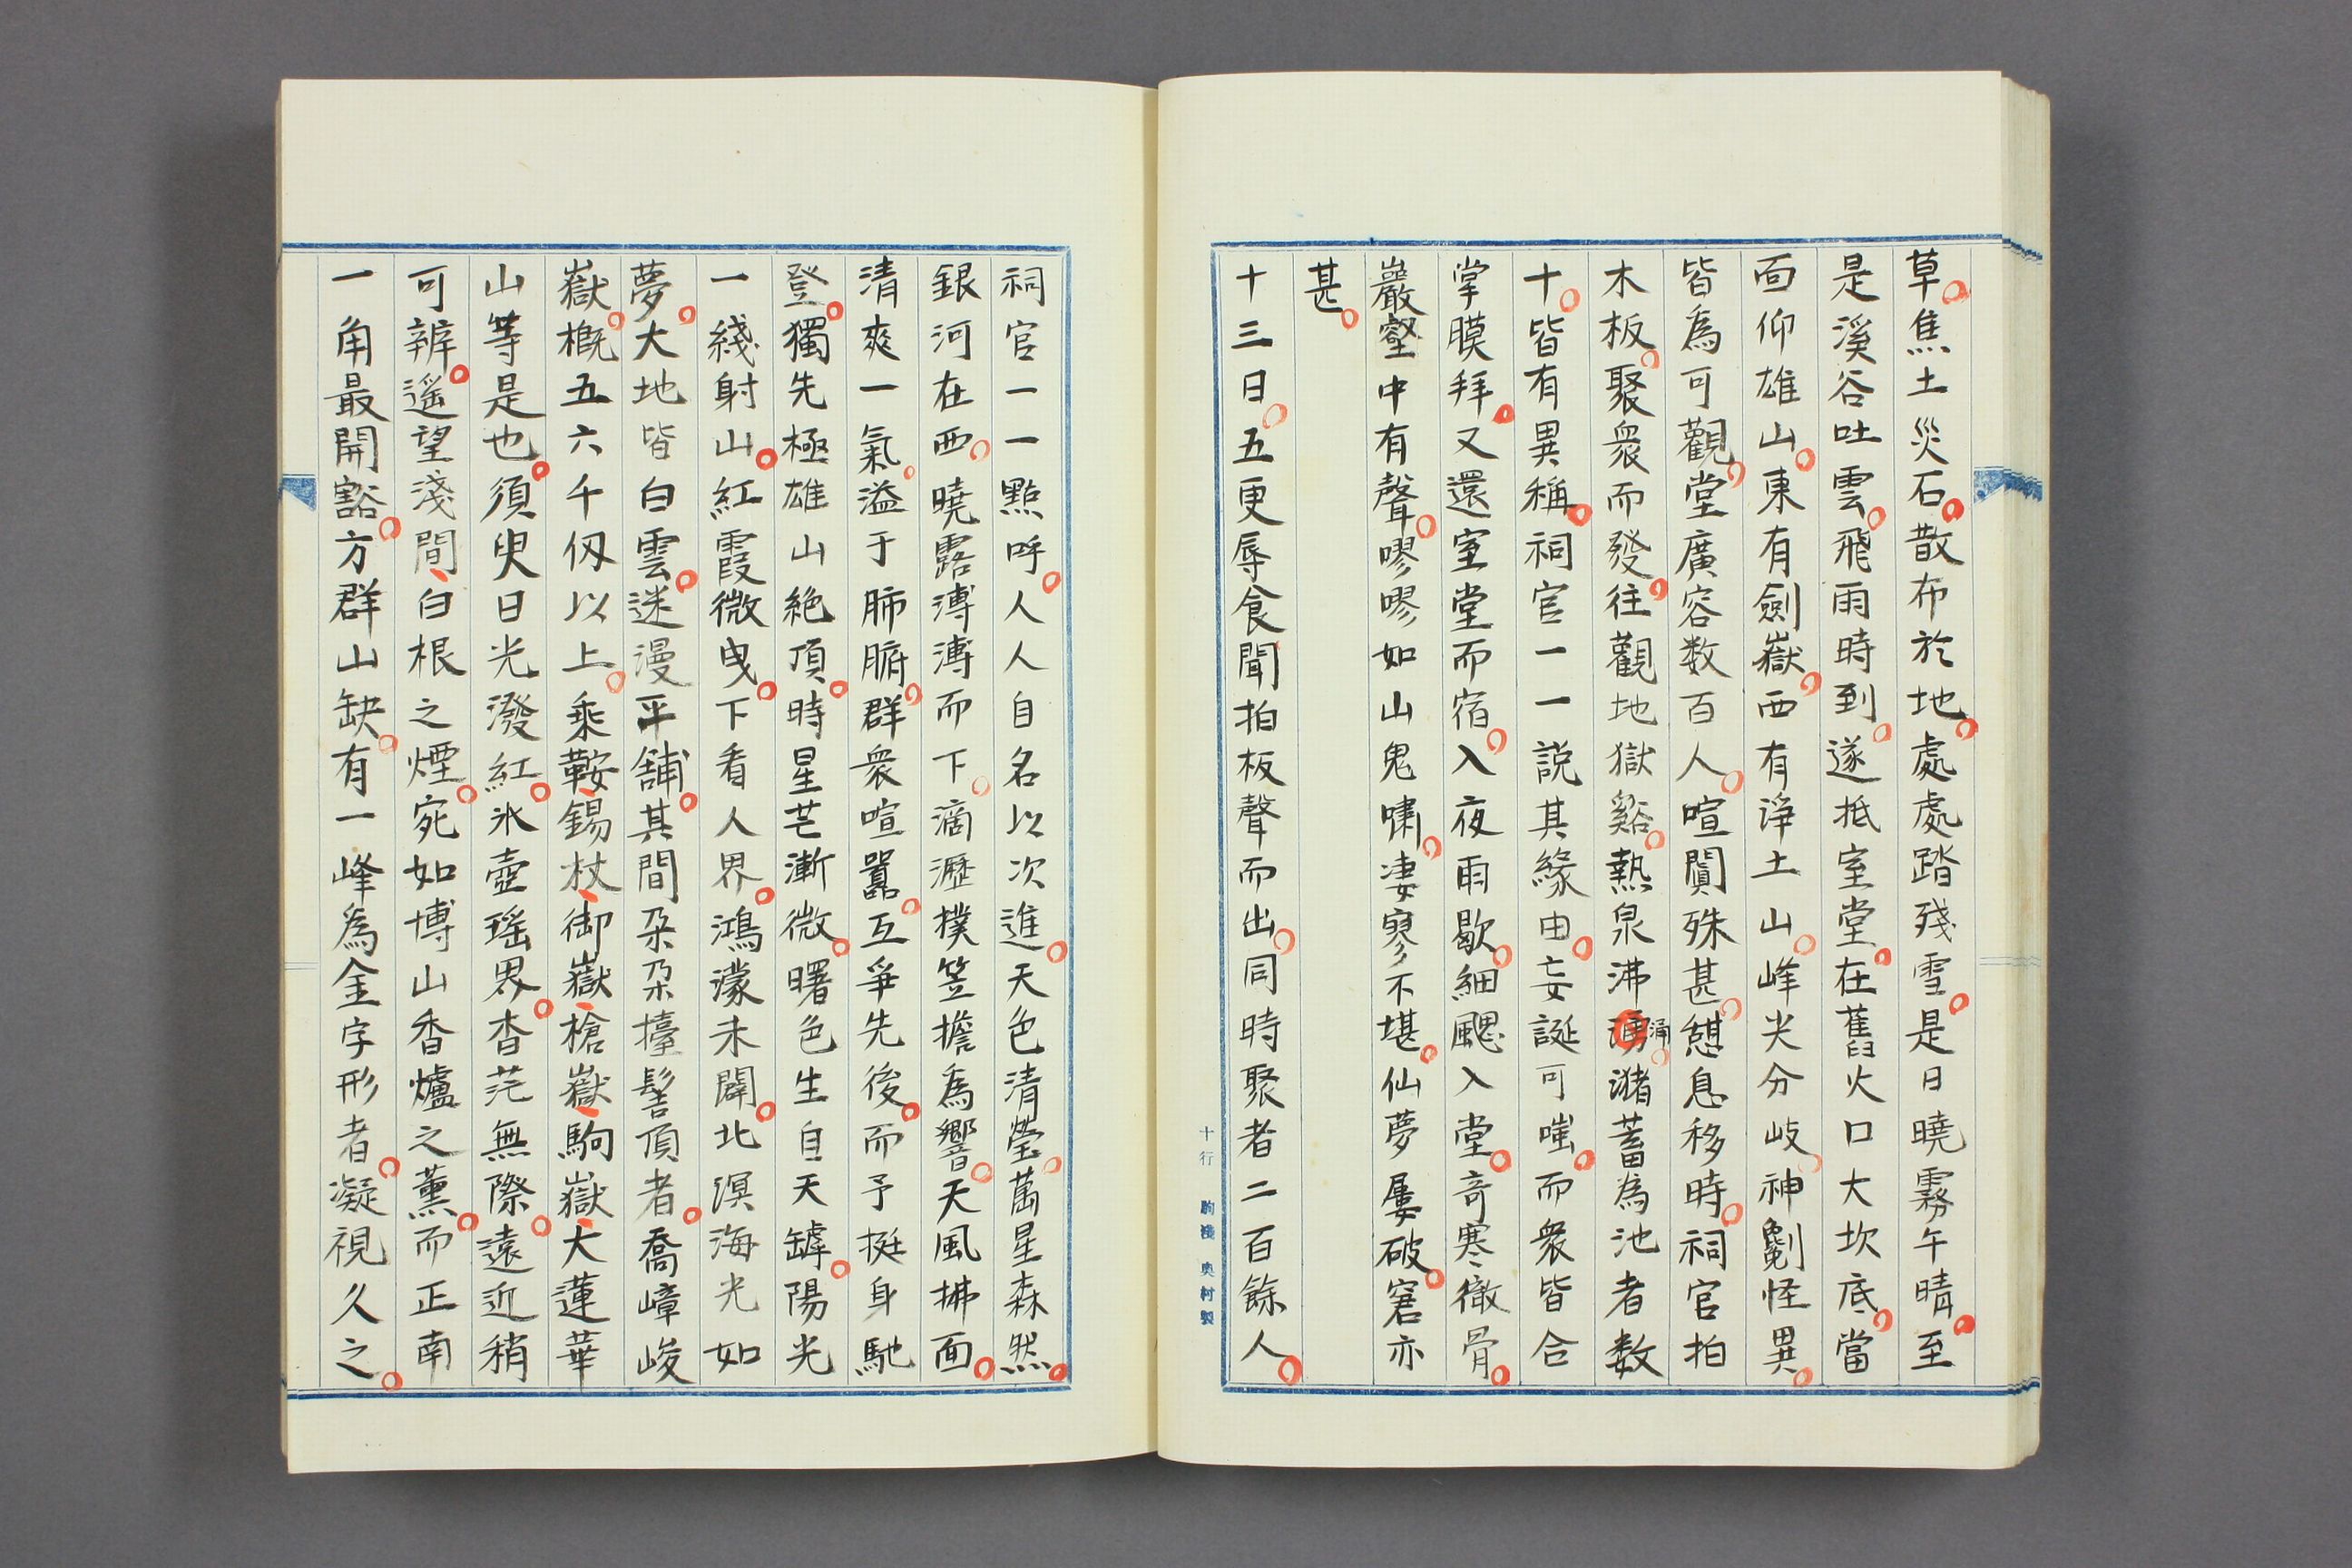 草。焦土災石。散布於地。處處踏殘雪。是日曉霧午晴。至
是溪谷吐雲。飛雨時到。遂抵室堂。在舊火口大坎底。當
面仰雄山。東有劍嶽。西有淨土山。峰尖分岐。神劖怪異。
皆為可觀。堂廣容数百人。喧闐殊甚。憩息移時。祠官拍
木板。聚衆而發。往觀地獄谿。熱泉沸湧瀦蓄為池者数
涌
十。皆有異稱。祠官一一説其緣由。妄誕可嗤。而衆皆合
掌膜拜。又還室堂而宿。入夜雨歇。細颸入堂。奇寒徹骨。
巖壑中有聲。嘐嘐如山鬼嘯。凄寥不堪。仙夢屢破。窘亦
甚。
十三日。五更辱食聞拍板聲而出。同時聚者二百餘人。
十行 駒淺 奥村製
祠官一一點呼。人人自名以次進。天色清瑩。萬星森然。
銀河在西。曉露溥溥而下。滴瀝撲笠簷為響。天風拂面。
清爽一氣。溢于肺腑。群衆喧囂。互爭先後。而予挺身馳
登。獨先極雄山絶頂。時星芒漸微。曙色生自天罅。陽光
一綫射山。紅霞微曳。下看人界。鴻濛未闢。北溟海光如
夢。大地皆白雲。迷漫平舖。其間朶朶擡髻頂者。喬嶂峻
嶽。概五六千仭以上。乘鞍、錫杖、御嶽、槍嶽、駒嶽、大蓮華
山等是也。須臾日光潑紅。氷壺瑤界。杳茫無際。遠近稍
可辨。遥望淺間、白根之煙。宛如博山香爐之薫。而正南
一角最開豁。方群山缺。有一峰為金字形者。凝視久之。